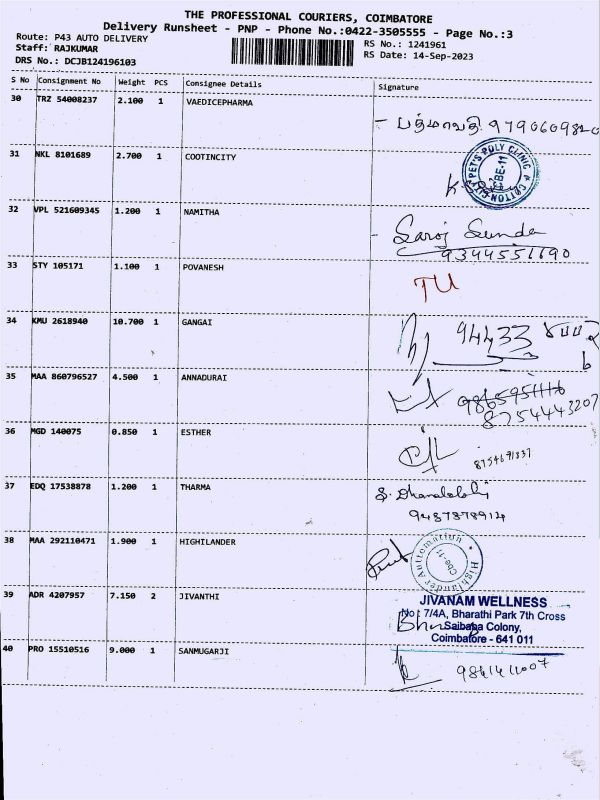 THE PROFESSIONAL COURIERS, COIMBATORE
Delivery Runsheet - PNP - Phone No.:0422-3505555 - Page No.:3
Route: P43 AUTO DELIVERY
RS No.: 1241961
Staff: RAJKUMAR
RS Date: 14-Sep-2023
DRS No.: DCJB124196103
S No Consignment No Weight PCS Consignee Details Signature
30 TRZ 54008237 2.100 1 VAEDICEPHARMA
- பத்மாவதி. 9790609820
31 NKL 8101689 2.700 1 COOTINCITY
COTTON CITY PET'S POLY CLINIC CBE-11
32 VPL 521609345 1.200 1 NAMITHA
- Saroj Sunda
9344551690
33 STY 105171 1.100 1 POVANESH
TU
34 KMU 2618940 10.700 1 GANGAI
94433
35 MAA 860796527 4.500 1 ANNADURAI
9865951116
8754443207
36 MGD 140075 0.850 1 ESTHER
8754691337
37 EDQ 17538878 1.200 1 THARMA
S. Dhanalakshmi
9487378914
38 MAA 292110471 1.900 1 HIGHLANDER
Highlander Automation Cbe-11
39 ADR 4207957 7.150 2 JIVANTHI
JIVANAM WELLNESS
No : 7/4A, Bharathi Park 7th Cross
Saibaba Colony,
Coimbatore - 641 011
40 PRO 15510516 9.000 1 SANMUGARJI
9841411007